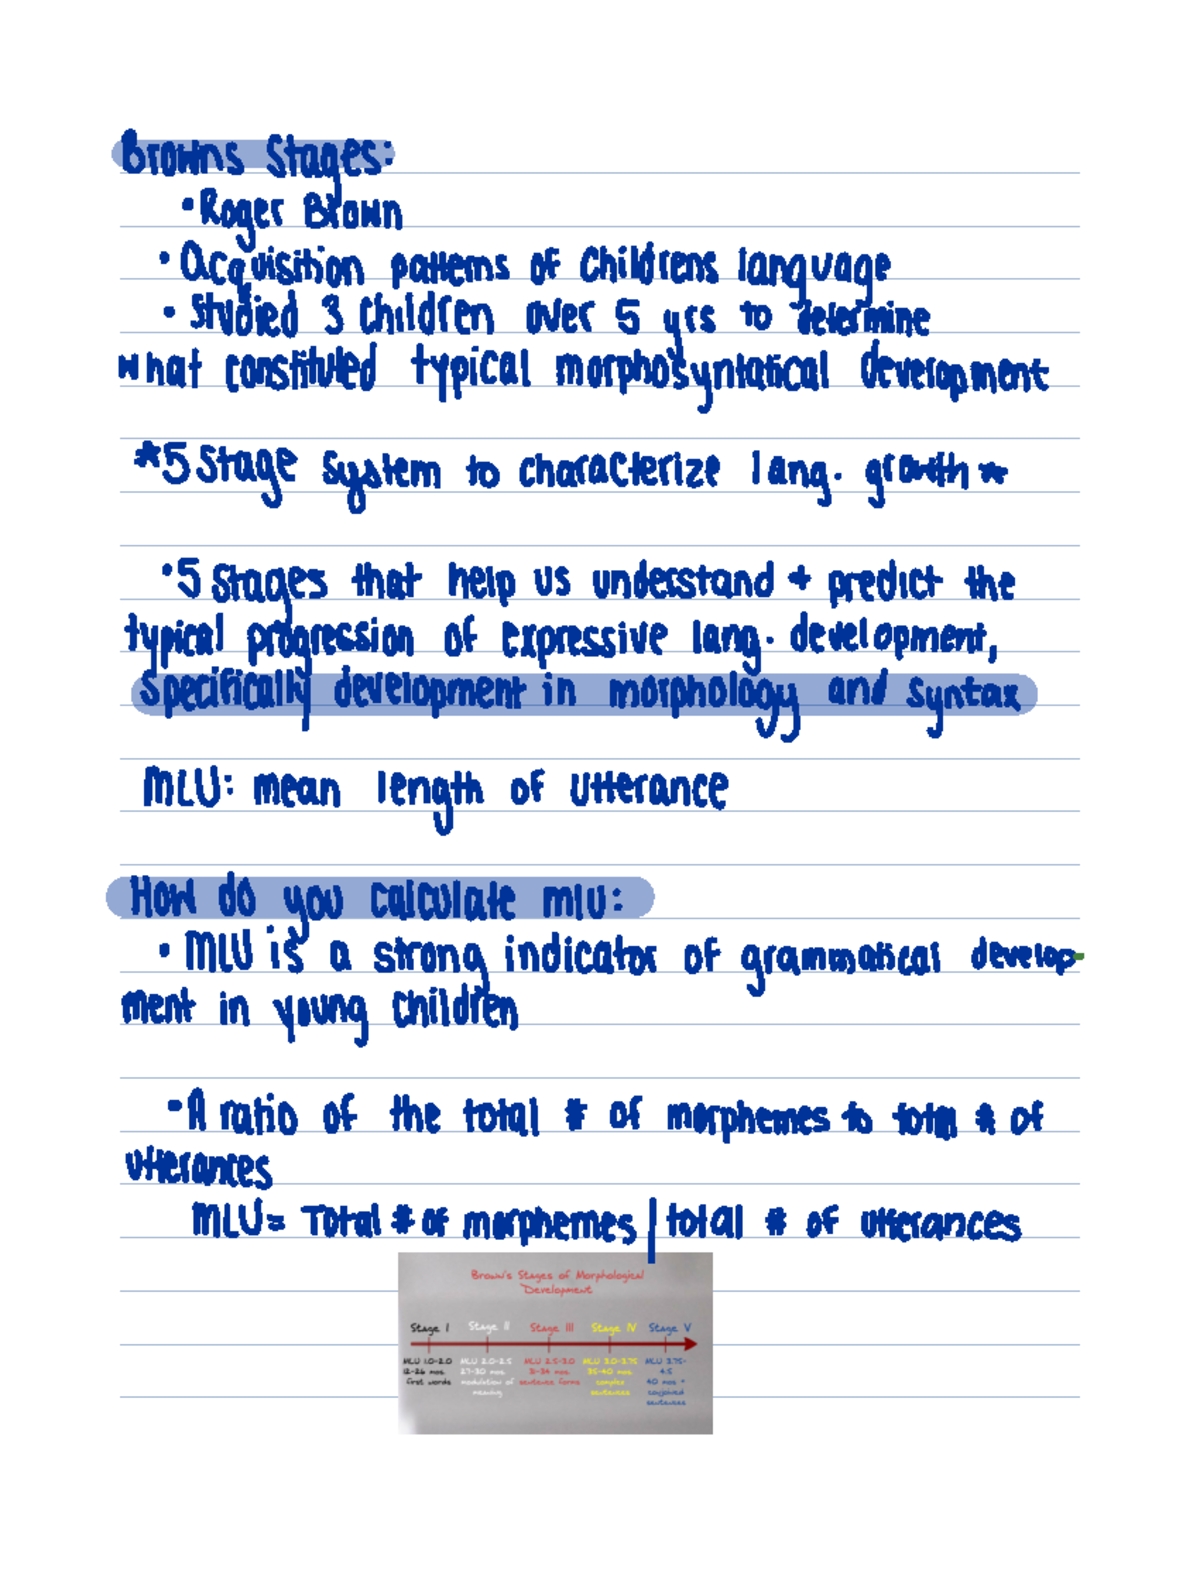 Browns Stages:
• Roger Brown
• Acquisition patterns of childrens language
• Studied 3 children over 5 yrs to determine
what constituted typical morphosyntatical development
*5 stage system to characterize lang. growth*
• 5 stages that help us understand + predict the
typical progression of expressive lang. development,
specifically development in morphology and syntax
MLU: mean length of utterance
How do you calculate mlu:
• MLU is a strong indicator of grammatical develop-
ment in young children
• A ratio of the total # of morphemes to total # of
utterances
MLU= Total # of morphemes | total # of utterances
Brown's Stages of Morphological
Development
Stage I Stage II Stage III Stage IV Stage V
MLU 1.0-2.0 MLU 2.0-2.5 MLU 2.5-3.0 MLU 3.0-3.75 MLU 3.75-
4.5
12-26 mos. 27-30 mos. 31-34 mos. 35-40 mos. 40 mos +
first words modulation of meaning sentence forms complex sentences conjoined sentences